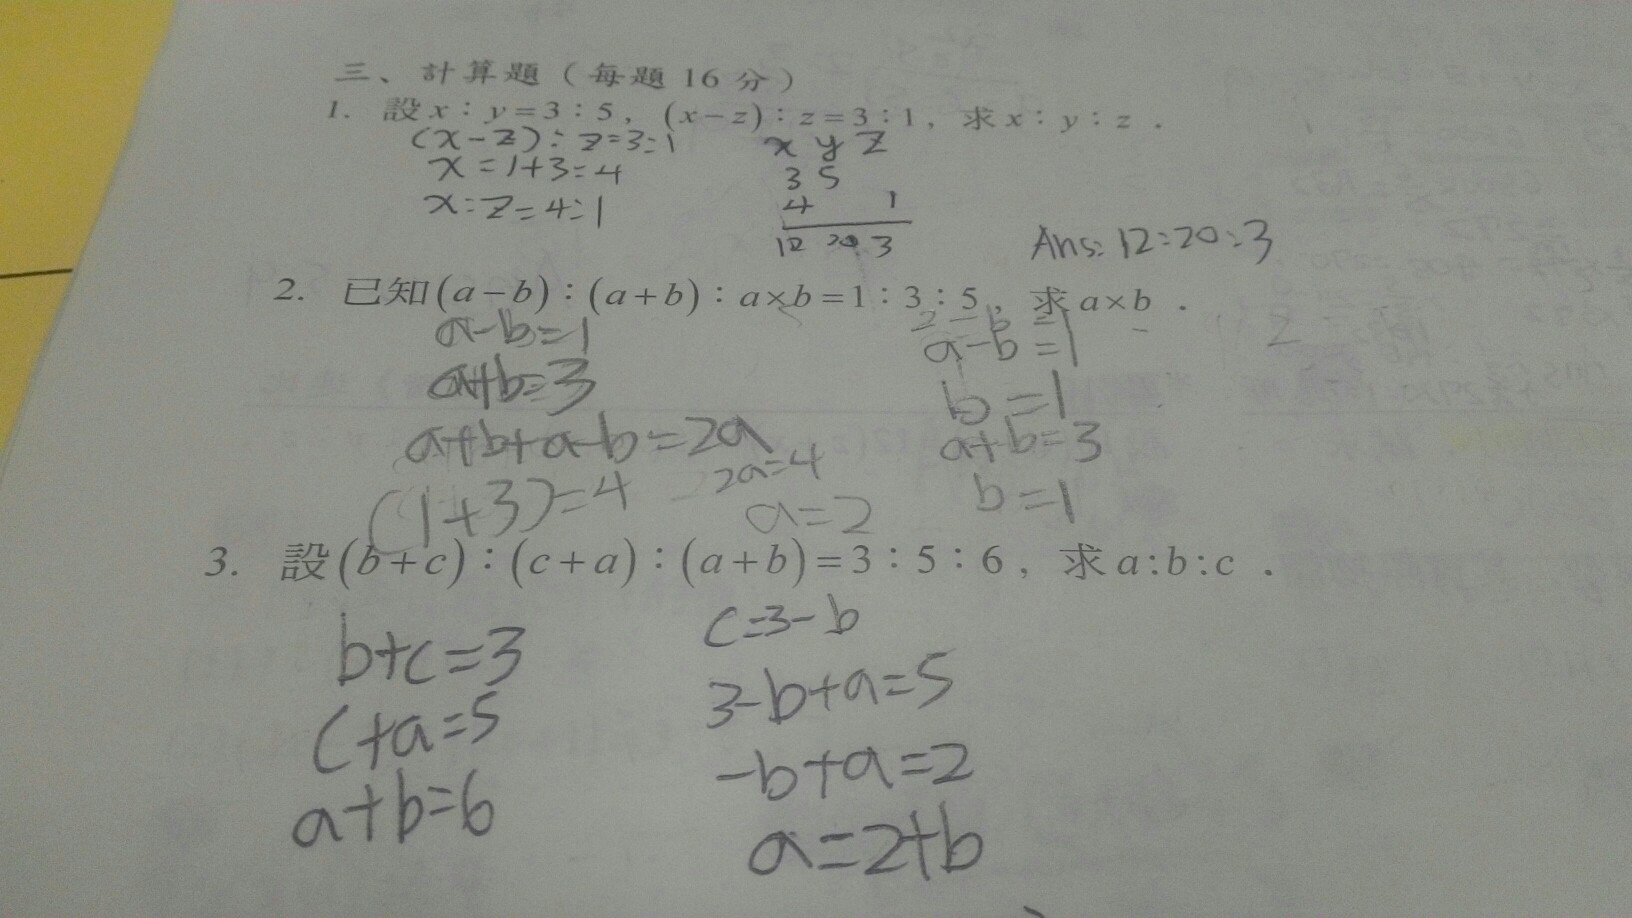 三、計算題（每題 16 分）
1. 設 x：y=3：5，(x−z)：z=3：1，求 x：y：z．
(x-z):z=3:1
x=1+3=4
x:z=4:1
x y z
3 5
4 1
12 20 3
Ans: 12:20:3
2. 已知(a−b)：(a+b)：a×b=1：3：5，求 a×b．
a-b=1
a+b=3
a+b+a-b=2a
(1+3)=4
2a=4
a=2
2-b=1
a-b=1
b=1
a+b=3
b=1
3. 設(b+c)：(c+a)：(a+b)=3：5：6，求 a:b:c．
b+c=3
c+a=5
a+b=6
c=3-b
3-b+a=5
-b+a=2
a=2+b